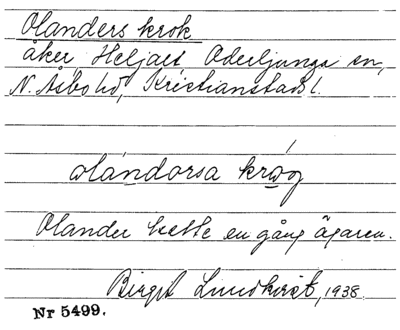 Olanders krok
åker Heljalt, Oderljunga sn,
N. Åsbo hd, Kristianstads l.
olándorsa krog
Olander hette en gång ägaren.
Birgit Lundkvist, 1938.
Nr 5499.